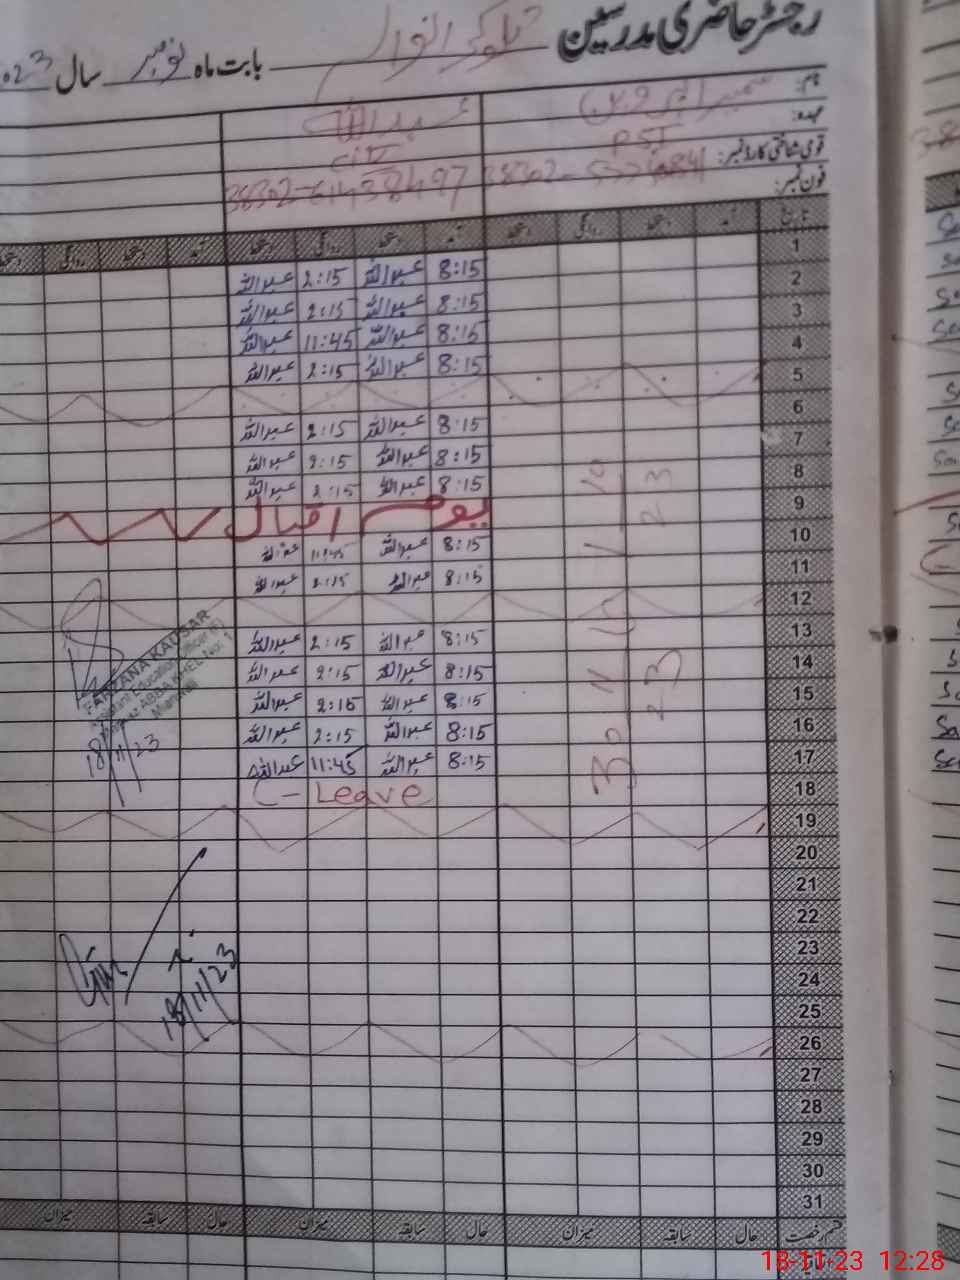 رجسٹر حاضری مدرسین
بابت ماہ نومبر سال 023
نام:
عہدہ: PST
قومی شناختی کارڈ نمبر:
فون نمبر:
عبداللہ
38302-611438497
تاریخ آمد دستخط روانگی دستخط آمد دستخط روانگی دستخط آمد دستخط روانگی دستخط
1 8:15 عبداللہ 2:15 عبداللہ
2 8:15 عبداللہ 2:15 عبداللہ
3 8:15 عبداللہ 11:45 عبداللہ
4 8:15 عبداللہ 2:15 عبداللہ
5
6 8:15 عبداللہ 2:15 عبداللہ
7 8:15 عبداللہ 2:15 عبداللہ
8 8:15 عبداللہ 2:15 عبداللہ
9 یوم اقبال
10 8:15 عبداللہ 11:45 عبداللہ
11 8:15 عبداللہ 2:15 عبداللہ
12
13 8:15 عبداللہ 2:15 عبداللہ
14 8:15 عبداللہ 2:15 عبداللہ
15 8:15 عبداللہ 2:15 عبداللہ
16 8:15 عبداللہ 2:15 عبداللہ
17 8:15 عبداللہ 11:45 عبداللہ
18 C-Leave
19
20
21
22
23
24
25
26
27
28
29
30
31
FARZANA KAUSAR
Assistant Education Officer (F)
Markaz ABBA KHEL No: 1
Mianwali
18/11/23
18/11/23
قسم رخصت حال سابقہ میزان حال سابقہ میزان حال سابقہ میزان
18-11-23 12:28